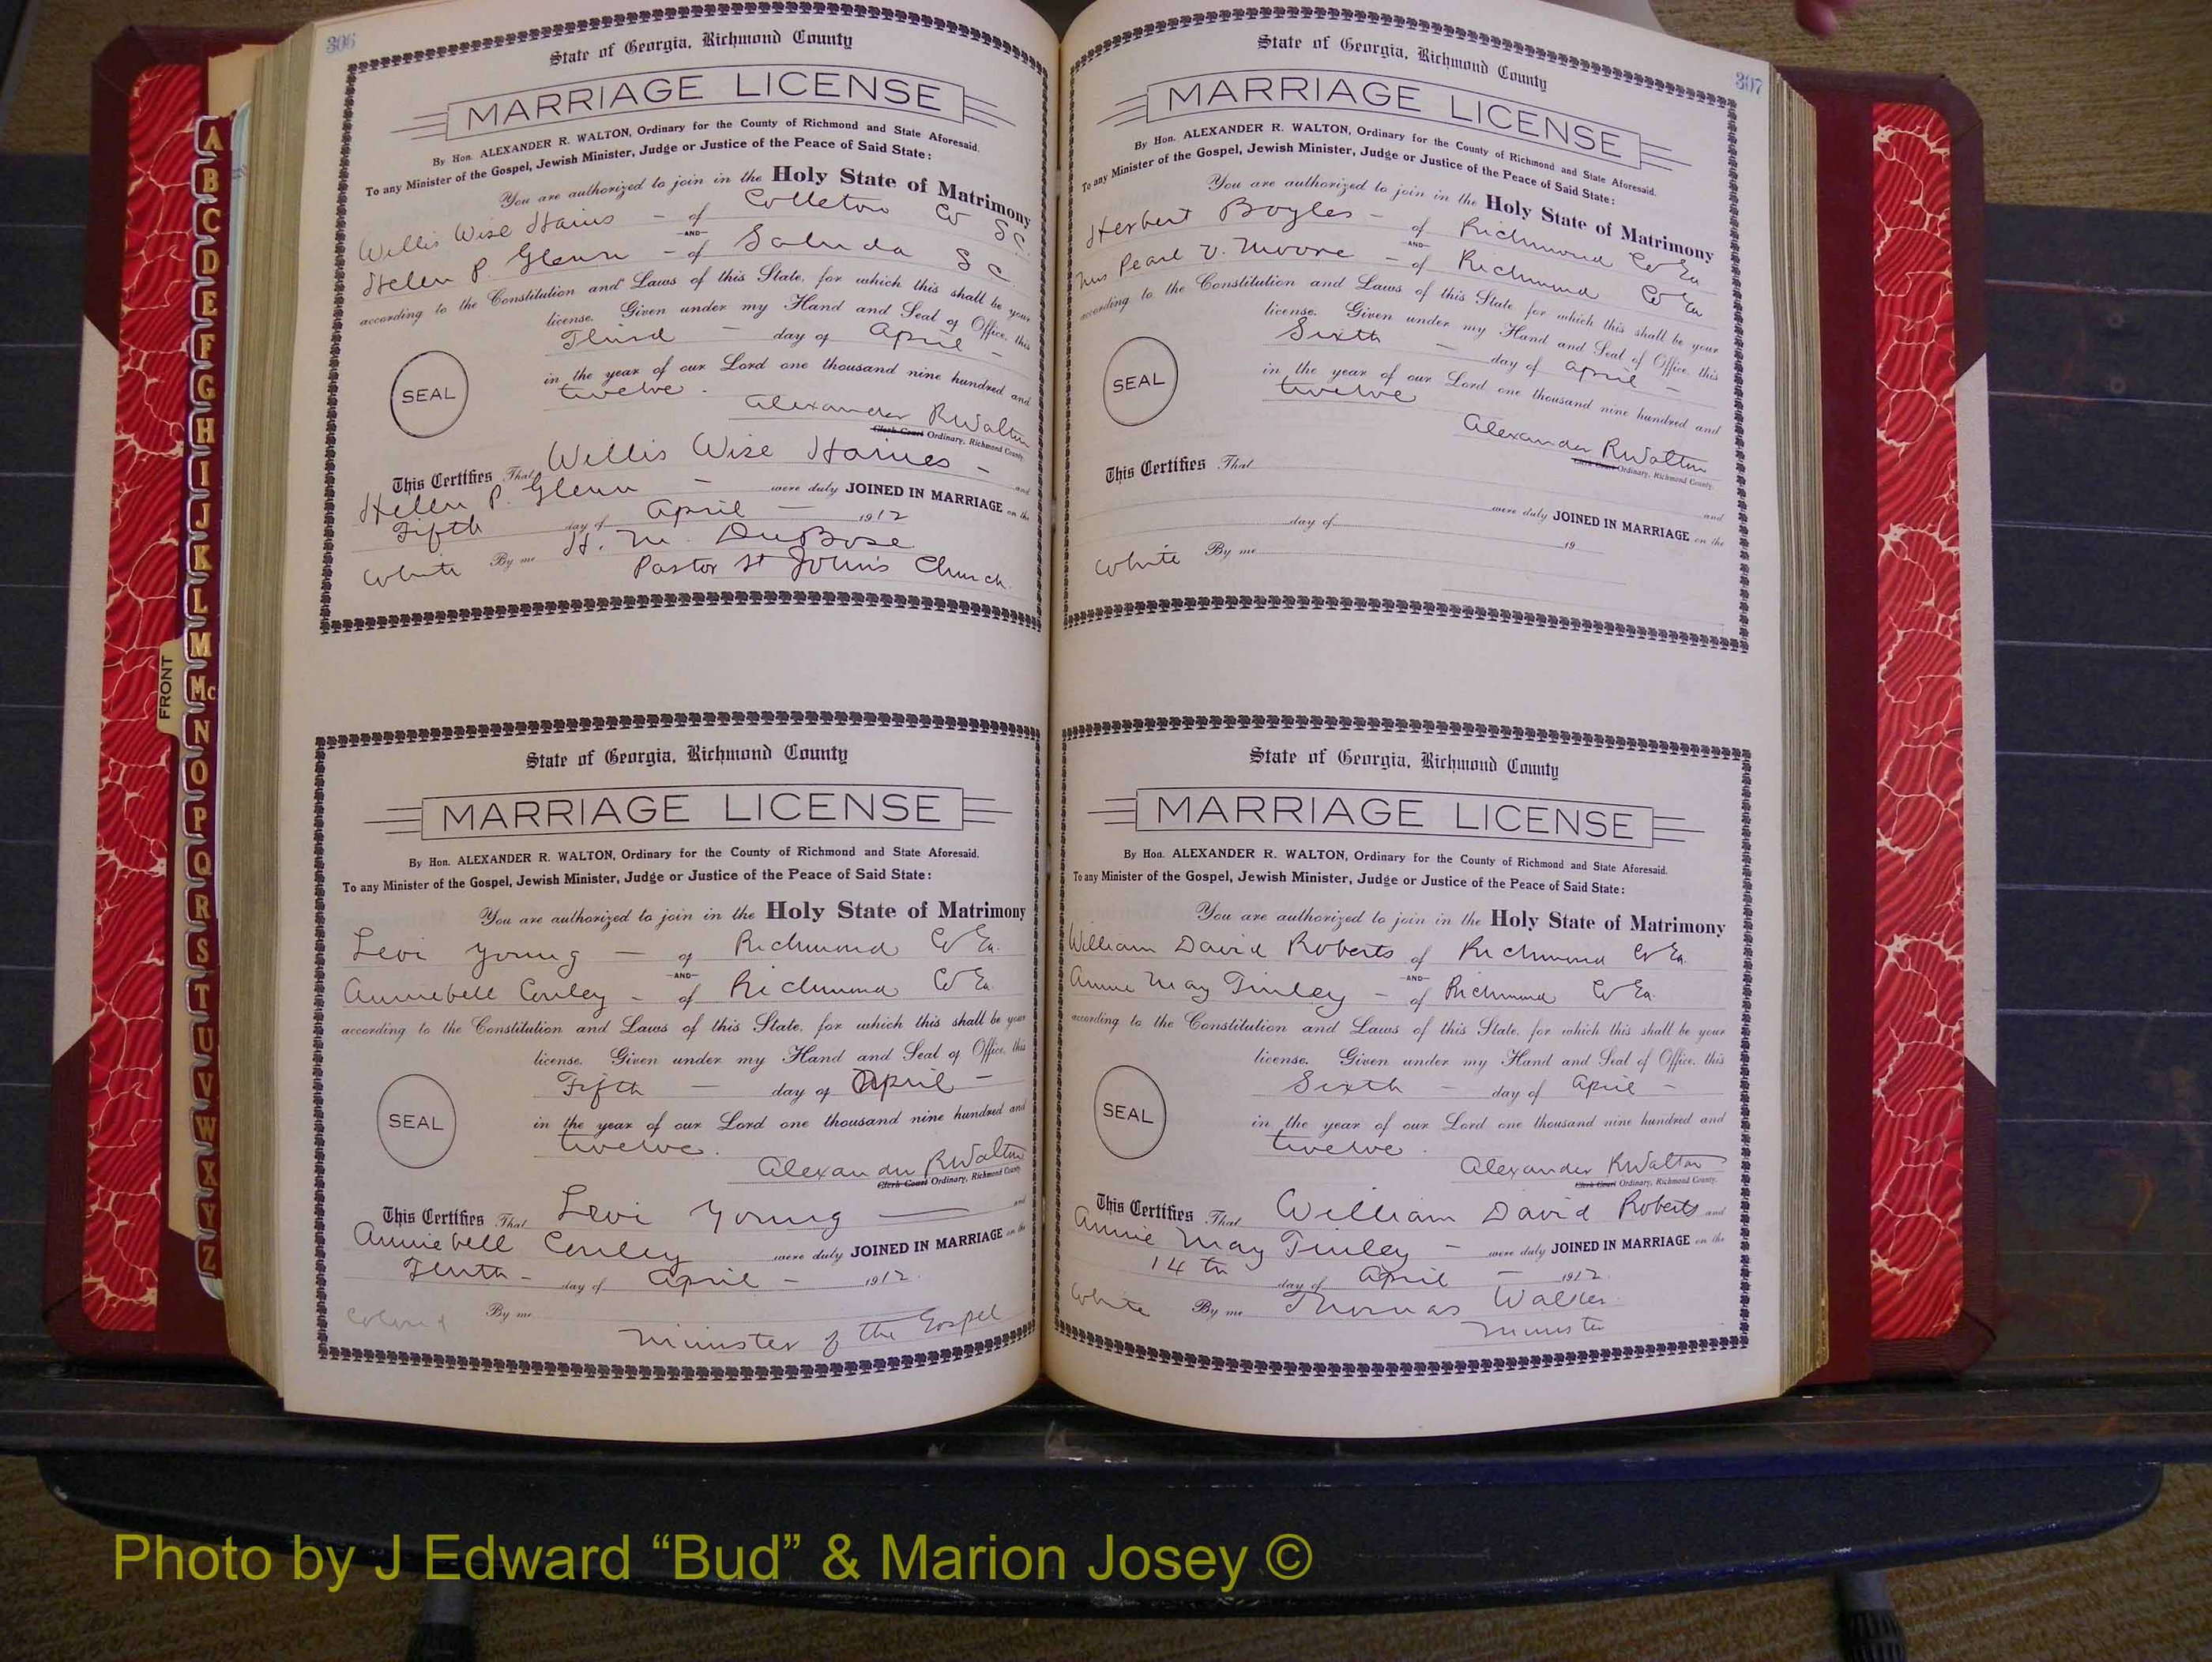 306
State of Georgia, Richmond County
MARRIAGE LICENSE
By Hon. ALEXANDER R. WALTON, Ordinary for the County of Richmond and State Aforesaid.
To any Minister of the Gospel, Jewish Minister, Judge or Justice of the Peace of Said State:
You are authorized to join in the Holy State of Matrimony
Willis Wise Hains - of Colleton Co S C.
AND
Helen P. Glenn - of Saluda S C
according to the Constitution and Laws of this State, for which this shall be your
license. Given under my Hand and Seal of Office, this
Third - day of April -
SEAL
in the year of our Lord one thousand nine hundred and
twelve.
Alexander R Walton
Clerk Court Ordinary, Richmond County.
This Certifies That Willis Wise Haines - and
Helen P. Glenn - were duly JOINED IN MARRIAGE on the
Fifth day of April - 1912
White By me H. M. DuBose
Pastor St John's Church.
State of Georgia, Richmond County
MARRIAGE LICENSE
By Hon. ALEXANDER R. WALTON, Ordinary for the County of Richmond and State Aforesaid.
To any Minister of the Gospel, Jewish Minister, Judge or Justice of the Peace of Said State:
You are authorized to join in the Holy State of Matrimony
Levi Young - of Richmond Co Ga.
AND
Anniebell Conley - of Richmond Co Ga.
according to the Constitution and Laws of this State, for which this shall be your
license. Given under my Hand and Seal of Office, this
Fifth - day of April -
SEAL
in the year of our Lord one thousand nine hundred and
twelve.
Alexander R Walton
Clerk Court Ordinary, Richmond County.
This Certifies That Levi Young - and
Anniebell Conley were duly JOINED IN MARRIAGE on the
Tenth - day of April - 1912.
Colored By me
Minister of the Gospel
307
State of Georgia, Richmond County
MARRIAGE LICENSE
By Hon. ALEXANDER R. WALTON, Ordinary for the County of Richmond and State Aforesaid.
To any Minister of the Gospel, Jewish Minister, Judge or Justice of the Peace of Said State:
You are authorized to join in the Holy State of Matrimony
Herbert Boyles - of Richmond Co Ga
AND
Mrs Pearl V. Moore - of Richmond Co Ga
according to the Constitution and Laws of this State for which this shall be your
license. Given under my Hand and Seal of Office, this
Sixth - day of April -
SEAL
in the year of our Lord one thousand nine hundred and
twelve
Alexander R Walton
Clerk Court Ordinary, Richmond County.
This Certifies That
and
were duly JOINED IN MARRIAGE on the
day of 19
White By me
State of Georgia, Richmond County
MARRIAGE LICENSE
By Hon. ALEXANDER R. WALTON, Ordinary for the County of Richmond and State Aforesaid.
To any Minister of the Gospel, Jewish Minister, Judge or Justice of the Peace of Said State:
You are authorized to join in the Holy State of Matrimony
William David Roberts of Richmond Co Ga.
AND
Annie May Tinley - of Richmond Co Ga.
according to the Constitution and Laws of this State, for which this shall be your
license. Given under my Hand and Seal of Office, this
Sixth - day of April -
SEAL
in the year of our Lord one thousand nine hundred and
twelve.
Alexander R Walton
Clerk Court Ordinary, Richmond County.
This Certifies That William David Roberts and
Annie May Tinley - were duly JOINED IN MARRIAGE on the
14th day of April - 1912.
White By me Thomas Walker
Minister
A
B
C
D
E
F
G
H
I
J
K
L
M
Mc
N
O
P
Q
R
S
T
U
V
W
X
Y
Z
FRONT
Photo by J Edward “Bud” & Marion Josey ©